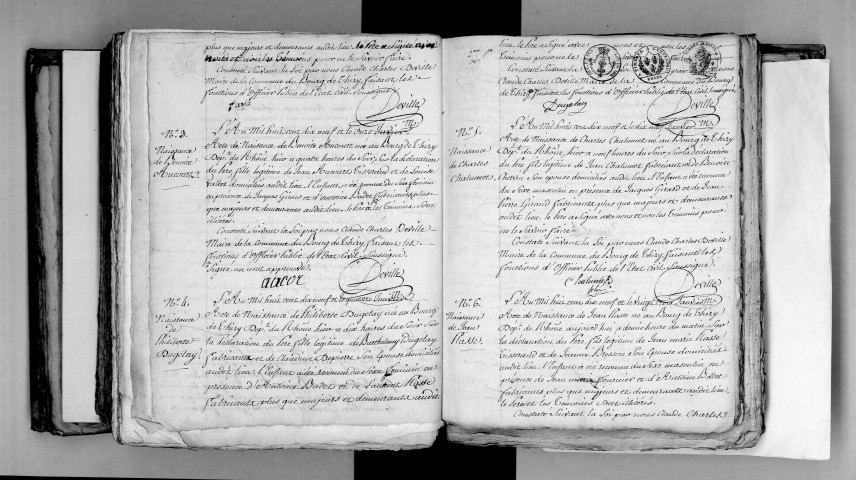 plus que majeurs et demeurants audit lieu, le Père a signé avec
nous et non les témoins pour ne le savoir faire.
Constaté Suivant la Loi par nous Claude Charles Deville
Maire de la Commune du Bourg de Thizy, faisant les
fonctions d'Officier public de l'Etat Civil, Soussigné
Deville
N°. 3.
Naissance
de Benoite
L'An Mil huit Cent dix neuf et le Janvier
Acte de Naissance de Benoite née au Bourg de Thizy
Dép.t du Rhône hier a quatre heures du Soir, Sur la déclaration
du Père fille légitime de Jean Tisserand et de Louise
domiciliés audit lieu. L'Enfant a été reconnu du Sexe féminin
en présence de Jacques Girard et d'Antoine Badet fabricants plus
que majeurs et demeurants audit lieu, le Père et les témoins Sont
illitérés.
Constaté Suivant la Loi par nous Claude Charles Deville
Maire de la Commune du Bourg de Thizy faisant les
fonctions d'Officier public de l'Etat Civil, Soussigné
Deville
N°. 4.
Naissance
de
Philiberte
Dupelay
L'An Mil huit Cent dix neuf et le quatorze Janvier
Acte de Naissance de Philiberte Dupelay née au Bourg
de Thizy Dép.t du Rhône hier a dix heures du Soir Sur
la déclaration du Père fille légitime de Barthelemy Dupelay
fabricant et de Claudine Depierre Son épouse domiciliés
audit lieu. L'Enfant a été reconnu du Sexe féminin en
présence d'Antoine Badet et de Laurent Plasse
fabricants plus que majeurs et demeurant audit
lieu, le Père a Signé avec nous et non les
témoins pour ne
Constaté Suivant la
Claude Charles Deville Maire de la Commune du Bourg
de Thizy, faisant les fonctions d'Officier public de l'Etat Civil, Soussigné
Dupelay
Deville
N°. 5.
Naissance
de Charles
Chalumet
L'An Mil huit Cent dix neuf et le dix neuf Janvier
Acte de Naissance de Charles Chalumet né au Bourg de Thizy
Dép.t du Rhône, hier a neuf heures du Soir, Sur la déclaration
du Père fils légitime de Jean Chalumet fabricant et de Benoite
Son épouse domiciliés audit lieu. L'Enfant a été reconnu
du Sexe masculin en présence de Jacques Girard et de Jean
Pierre Girard fabricants plus que majeurs et demeurants
audit lieu, le Père a Signé avec nous et non les témoins pour
ne le Savoir faire.
Constaté Suivant la Loi par nous Claude Charles Deville
Maire de la Commune du Bourg de Thizy, faisant les
fonctions d'Officier public de l'Etat Civil, Soussigné
Deville
N°. 6.
Naissance
de Jean
Plasse.
L'An Mil huit Cent dix neuf et le vingt Janvier
Acte de Naissance de Jean Plasse né au Bourg de Thizy
Dép.t du Rhône aujourd'hui a demie heure du matin Sur
la déclaration du Père fils légitime de Jean marie Plasse
Tisserand et de Jeanne Besson Son épouse domiciliés
audit lieu. L'Enfant a été reconnu du Sexe masculin en
présence de Jean Fournier et d'Antoine Badet
fabricants plus que majeurs et demeurants audit lieu,
le Père et les témoins Sont illitérés.
Constaté Suivant la Loi par nous Claude Charles